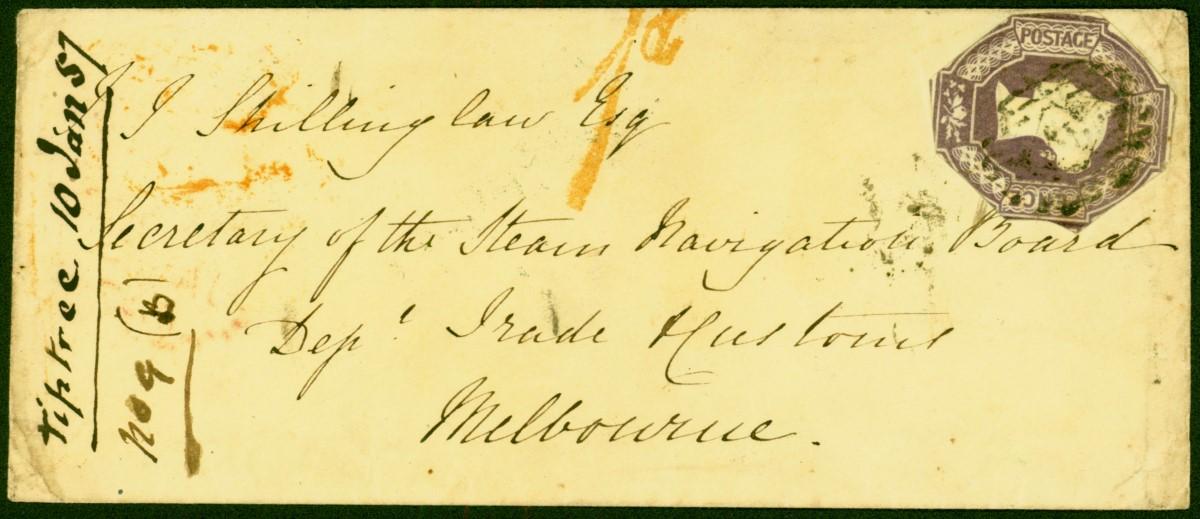 J J Shillinglaw Esq
Secretary of the Steam Navigation Board
Dept Trade Customs
Melbourne.
Tiptree 10 Jan 57
No 9 (B)
1d
POSTAGE